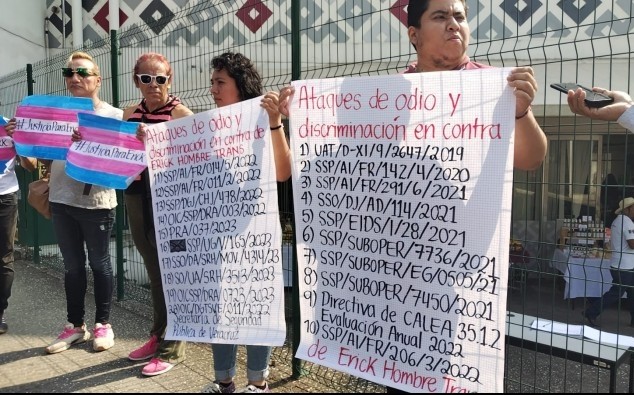 #JusticiaPara
#JusticiaParaErick
Ataques de odio y
discriminación en contra de
ERICK HOMBRE TRANS
11) SSP/AI/FR/014/5/2022
12) SSP/AI/FR/011/2/2022
13) SSP/DGJ/CHJ/478/2022
14) OIC/SSP/DRA/003/2022
15) PRA/037/2023
16) SSP/UGN/165/2023
17) SSO/DA/SRH/MOV/4314/23
18) SO/UA/SRH/3513/2023
19) OIC/SSP/DRA/0723/2023
20) OIC/DGTSVE/011/2022
Secretaría de Seguridad
Pública de Veracruz
Ataques de odio y
discriminación en contra
1) UAT/D-XI/9/2647/2019
2) SSP/AI/FR/142/4/2020
3) SSP/AI/FR/291/6/2021
4) SSO/DJ/AD/114/2021
5) SSP/EIDS/1/28/2021
6) SSP/SUBOPER/7736/2021
7) SSP/SUBOPER/EG/0505/21
8) SSP/SUBOPER/7450/2021
9) Directiva de CALEA 35.1.2
Evaluación Anual 2022
10) SSP/AI/FR/206/3/2022
de Erick Hombre Trans